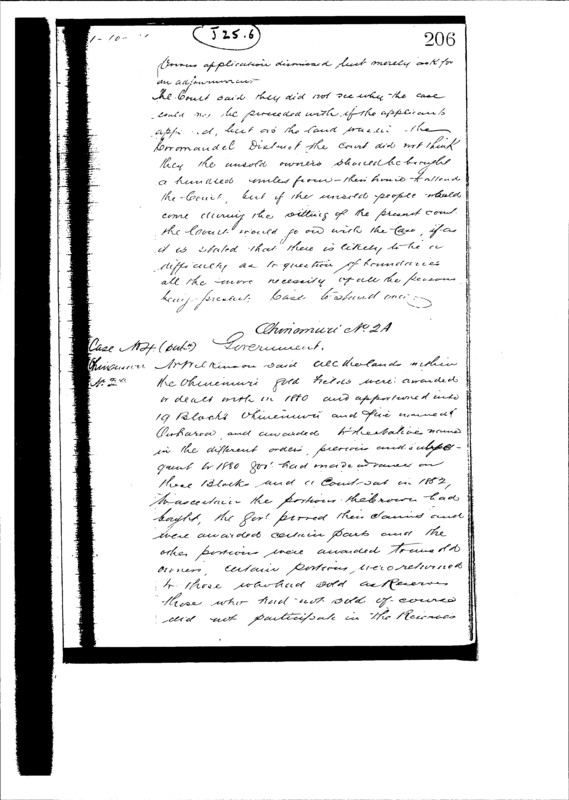 J 25.6
206
application dismissed but merely ask for
an adjournment
The Court said they did not see why the case
could not be proceeded with if the applicants
but as the land was in the
Coromandel District the Court did not think
they the unsold owners should be brought
a hundred miles from their home to attend
the Court, but if the unsold people should
come during the sitting of the present court
the Court would go on with the case, if as
it is stated that there is likely to be a
difficulty as to question of boundaries
all the more necessity of all the persons
being present. Case to stand over
Ohinemuri No 2A
Case No 24
Government.
Ohinemuri
No 2A
Mr Wilkinson said all the lands within
the Ohinemuri gold fields were awarded
or dealt with in 1880 and apportioned into
19 Blocks Ohinemuri and
and awarded to the natives named
in the different orders, previous and subse-
quent to 1880 Govt had made advances on
these Blocks and a Court sat in 1882,
to ascertain the portions the Crown had
bought, the Govt proved their claims and
were awarded certain parts and the
other portions were awarded to unsold
owners, certain portions were returned
to those who had sold as Reserves
those who had not sold of course
did not participate in the Reserves